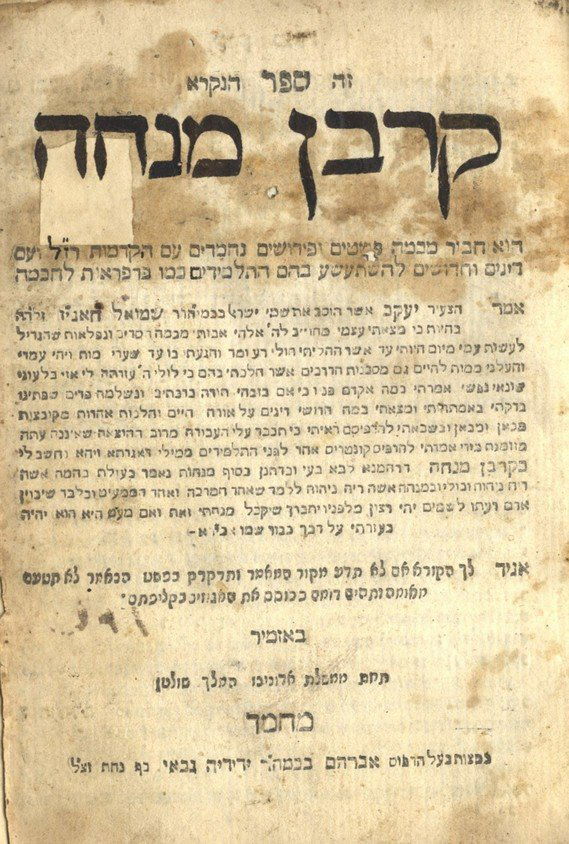 זה ספר הנקרא
קרבן מנחה
הוא חביר מכמה פשטים ופירושים נחמדים עם הקדמות רז״ל ועם
דינים וחדושים להשתעשע בהם התלמידים כמו פרפראית לחכמה
אמר הצעיר יעקב אשר הוכב את שמי ישראל בכמיהור שמואל חאגיז זלהה
בהיות כי מצאתי עצמי מחוייב לה׳ אלהי אבותי מכמה חסדים ונפלאות שהגדיל
לעשות עמי מיום היותי עד אשר החליתי חולי רע ומר והגעתי בו עד שערי מות ויהי עמדי
והעלני ממות לחיים גם מסכנות הדרכים אשר הלכתי בהם כי לולי ה׳ עזרתה לי אזי בלעוני
שונאי נפשי אמרתי במה אקדם פניו כי אם בזבחי תודה ונשלמה פרים שפתינו
בדקתי באמתחתי ומצאתי כמה חדושי דינים על אורח חיים והלכות אחרות מקובצות
מכאן ומכאן ובשבאתי להדפיסם ראיתי כי תכבד עלי העבודה מרוב ההוצאה שאיננה עתה
מזומנת בידי אמרתי להדפיס קונטריס אחד לפני התלמידים ממילי דאגדתא ויהא נחשב לי
כקרבן מנחה דרחמנא לבא בעי וכדתנן בסוף מנחות נאמר בעולת בהמה אשה
ריח ניחוח ובמנחה אשה ריח ניחוח ללמד שאחד המרבה ואחד הממעיט ובלבד שיכוין
אדם דעתו לשמים יהי רצון מלפניו יתברך שיקבל מנחתי זאת ואם מעט היא הוא יהיה
בעזרתי על דבר כבוד שמו : כי״א -
אגיד לך הקורא אם לא תדע מקור המאמר ותדקדק בפשט הנאמר לא תטעם
באזמיר
תחת ממשלת אדונינו המלך שולטן
מחמד
במצות בעל הדפוס אברהם בכמה״ר ידידיה גבאי